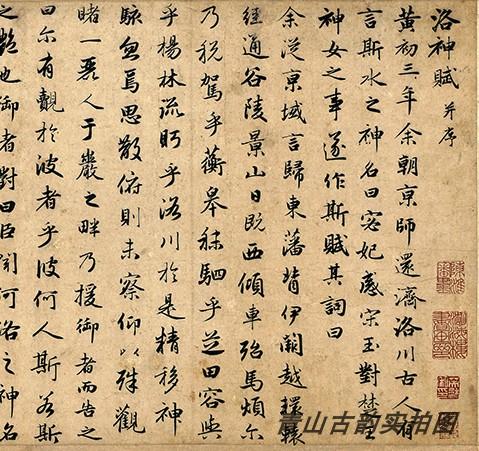 洛神賦 并序
黃初三年余朝京師還濟洛川古人有
言斯水之神名曰宓妃感宋玉對楚王
神女之事遂作斯賦其詞曰
余從京域言歸東藩背伊闕越轘轅
經通谷陵景山日既西傾車殆馬煩尔
乃稅駕乎蘅皋秣駟乎芝田容與
乎楊林流眄乎洛川於是精移神
駭忽焉思散俯則未察仰以殊觀
睹一麗人于巖之畔乃援御者而告之
曰尔有覿於彼者乎彼何人斯若斯
之艷也御者對曰臣聞河洛之神名
青山古韵实拍图